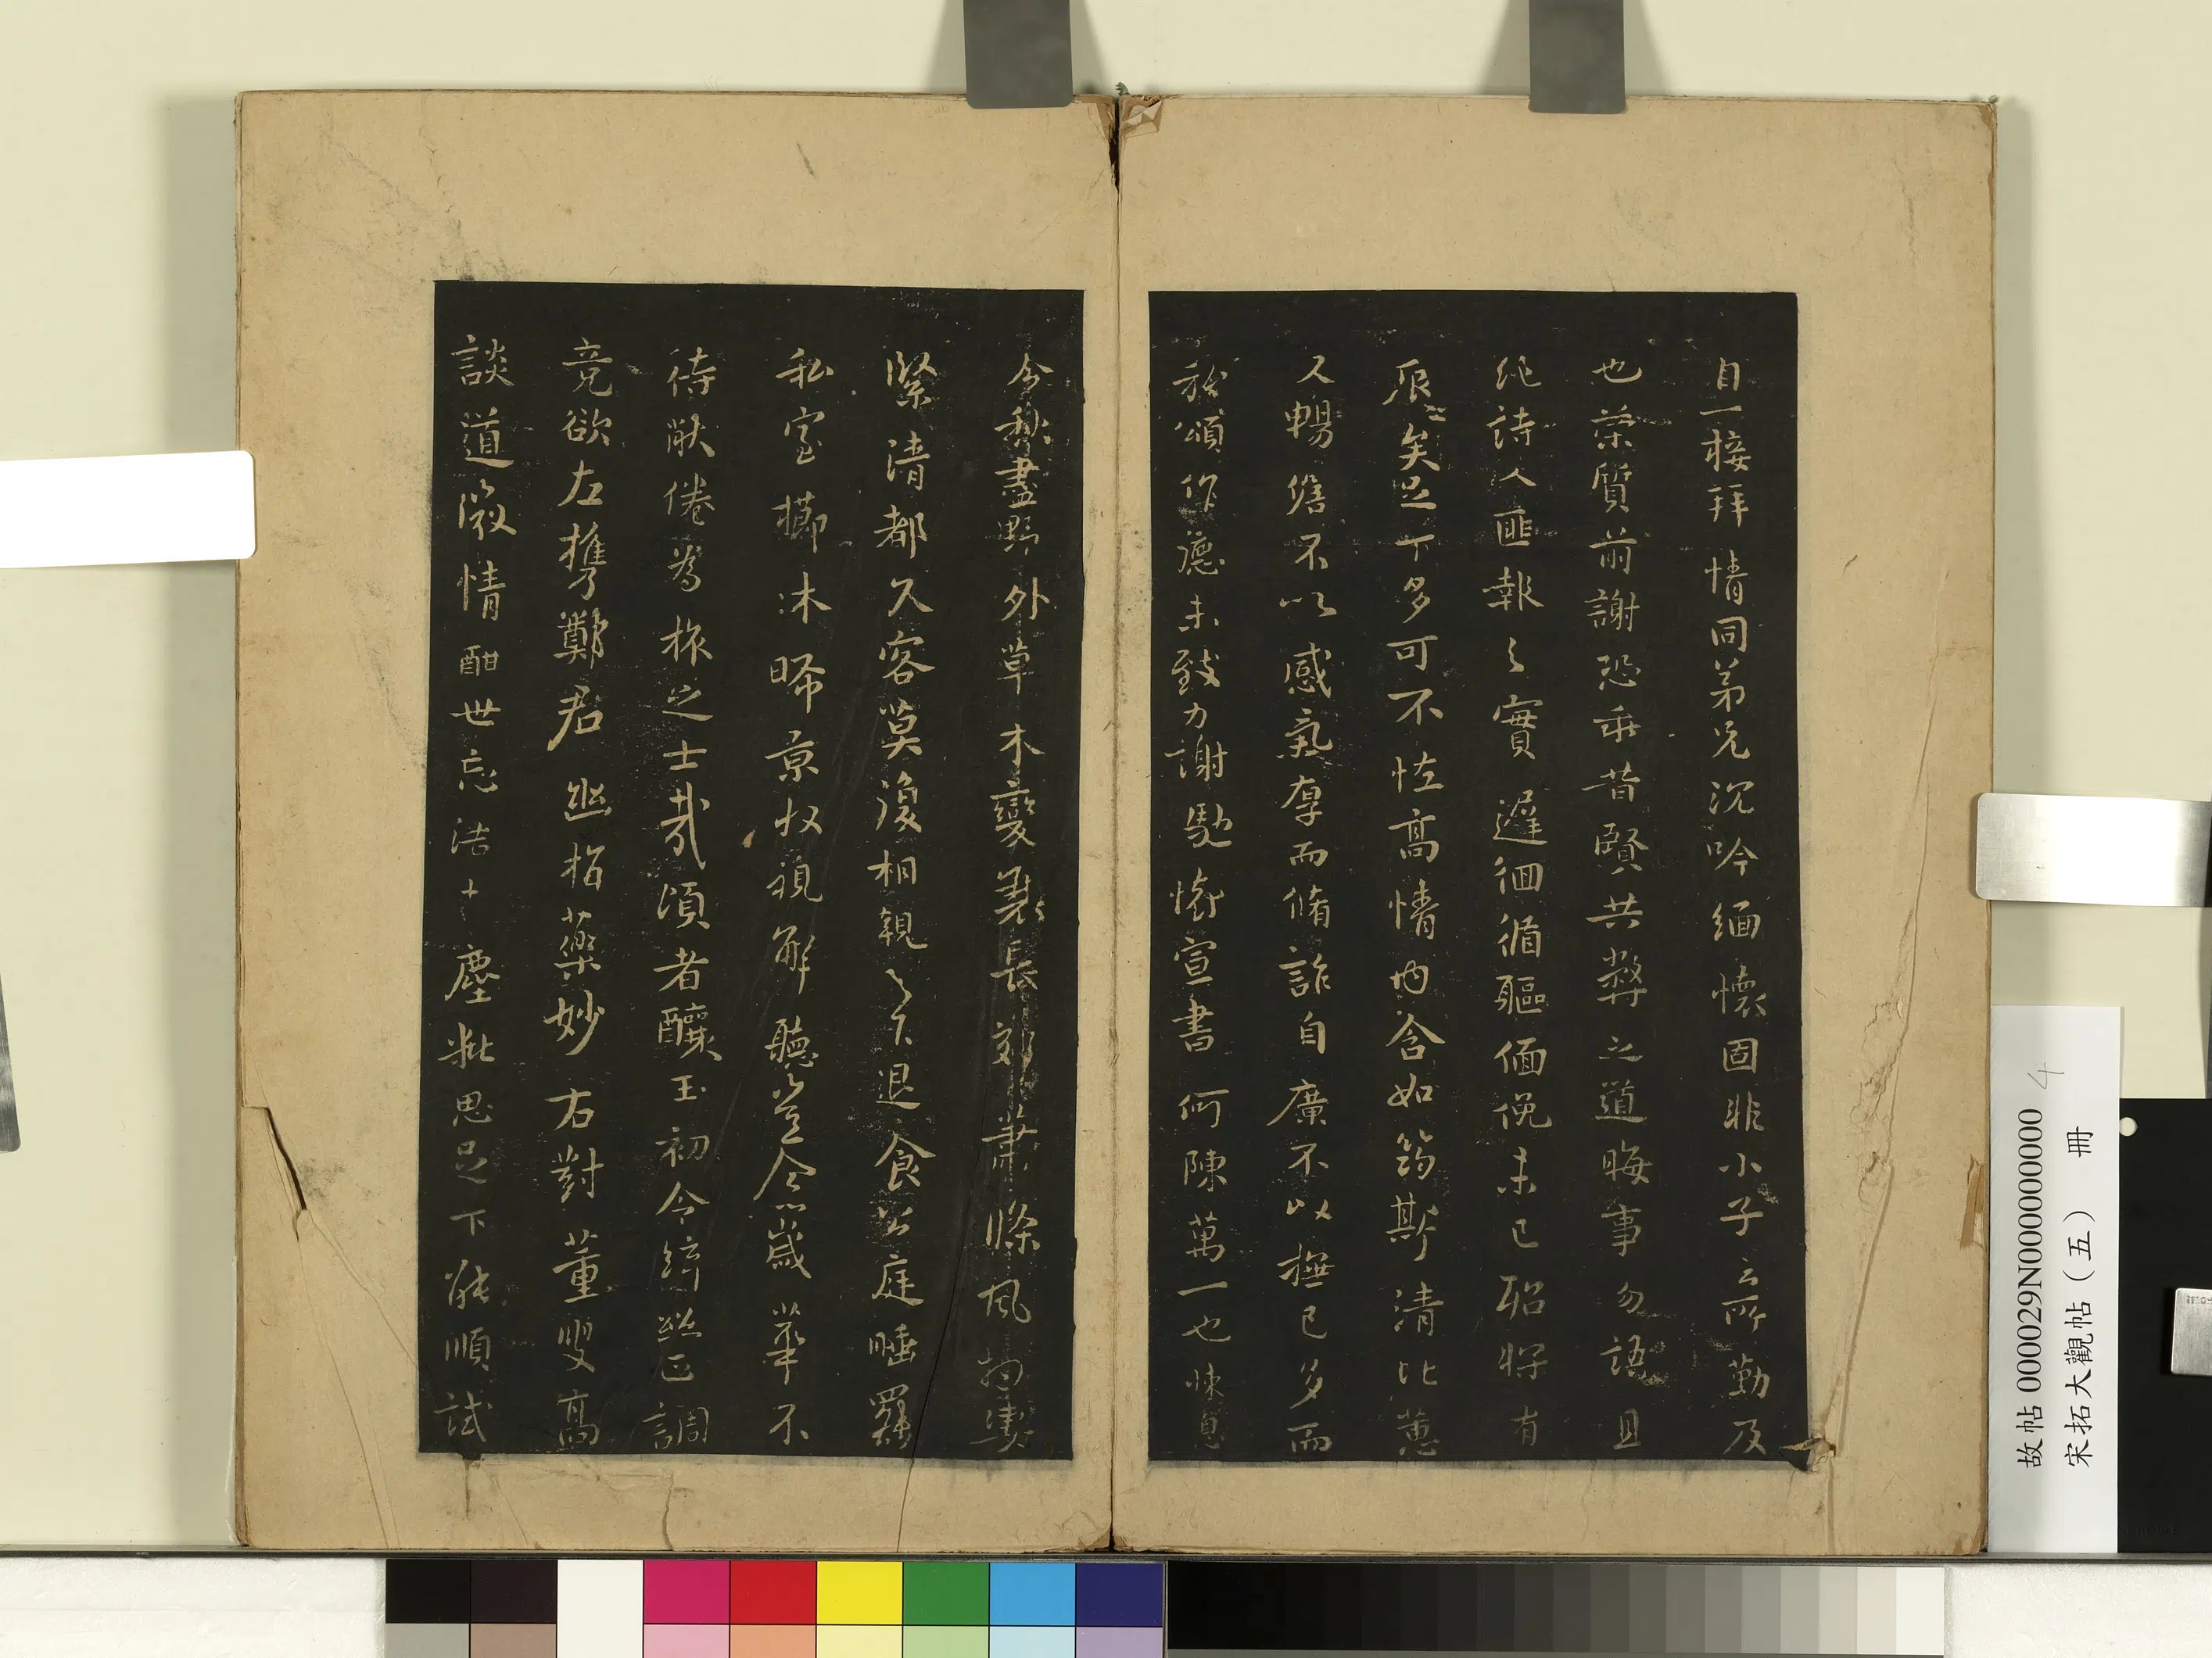 自一接拜情同弟兄沉吟緬懷固非小子之所勤及
也蒙質前謝恐乖昔賢共弊之道晦事勿語且
純詩人匪報之實遲徊循驅僶俛未已耶將有
辰矣足下多可不恠高情內含如筠斯清比蕙
又暢傳不以感氣厚而脩詐自廣不以撫已多而
頌作德未致力謝馳懷宣書何陳萬一也悚息
今秋盡野外草木變衰長郊蕭條風物淒
緊清都久客莫復相親之下退食公庭睡羅
私室擲沐晞京收視解聽豈令歲華不
待猒倦為旅之士哉頃者釀玉初今絲正調
竟欲左攜鄭君幽指藥妙右對董叟高
談道激情酣世忘浩十塵粃思足下能順試
故帖000029N000000000 4
宋拓大觀帖（五） 冊